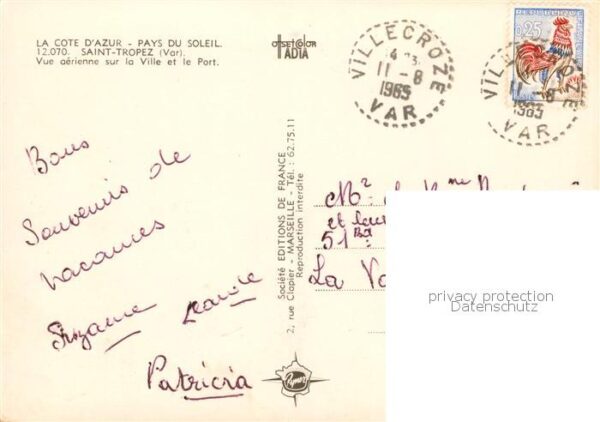 LA COTE D'AZUR - PAYS DU SOLEIL.
12.070. SAINT-TROPEZ (Var).
Vue aérienne sur la Ville et le Port.
offsetcolor
ADIA
VILLECROZE
11-8
1965
VAR
REPUBLIQUE FRANÇAISE
0,25
VILLECROZE
11-8
1965
VAR
Bons
Souvenirs de
vacances
Suzanne
Patricia
Société EDITIONS DE FRANCE
2, rue Clapier - MARSEILLE - Tél. : 62.75.11
Reproduction interdite
Mr
et leur
51 Bd
La Va
privacy protection
Datenschutz